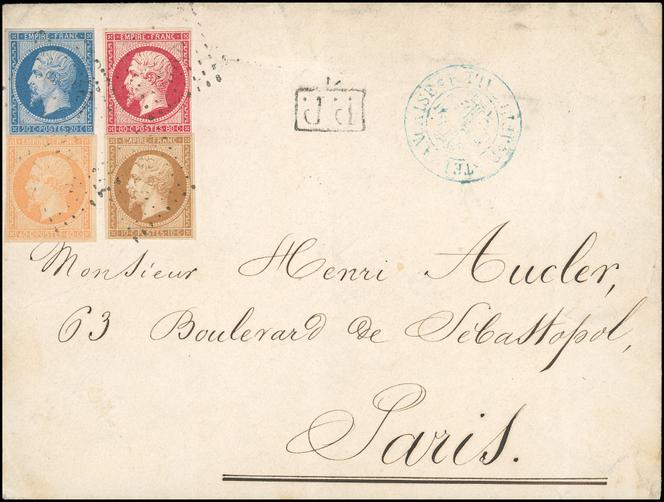 EMPIRE FRANC
20·C·POSTES·20·C
EMPIRE FRANC
80·C·POSTES·80·C
EMPIRE FRANC
40·C·POSTES·40·C
EMPIRE FRANC
10·C·POSTES·10·C
P.P.
Monsieur Henri Aucler,
63 Boulevard de Sébastopol,
Paris.